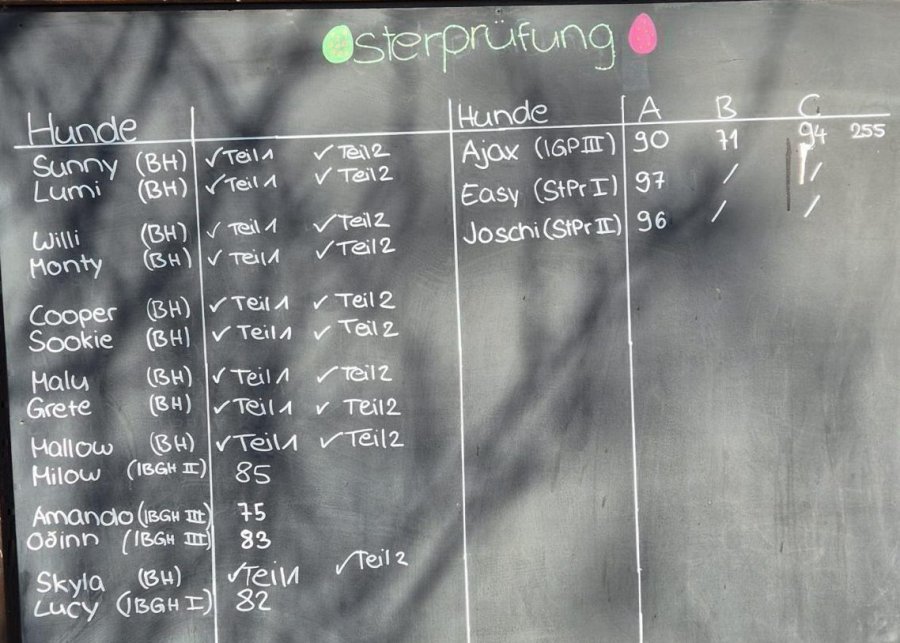 Osterprüfung
Hunde
Sunny (BH) ✓Teil 1 ✓Teil 2
Lumi (BH) ✓Teil 1 ✓Teil 2
Willi (BH) ✓Teil 1 ✓Teil 2
Monty (BH) ✓Teil 1 ✓Teil 2
Cooper (BH) ✓Teil 1 ✓Teil 2
Sookie (BH) ✓Teil 1 ✓Teil 2
Malu (BH) ✓Teil 1 ✓Teil 2
Grete (BH) ✓Teil 1 ✓Teil 2
Mallow (BH) ✓Teil 1 ✓Teil 2
Milow (IBGH II) 85
Amando (IBGH III) 75
Oðinn (IBGH III) 83
Skyla (BH) ✓Teil 1 ✓Teil 2
Lucy (IBGH I) 82
Hunde A B C
Ajax (IGP III) 90 71 94 255
Easy (StPr I) 97 / /
Joschi (StPr II) 96 / /